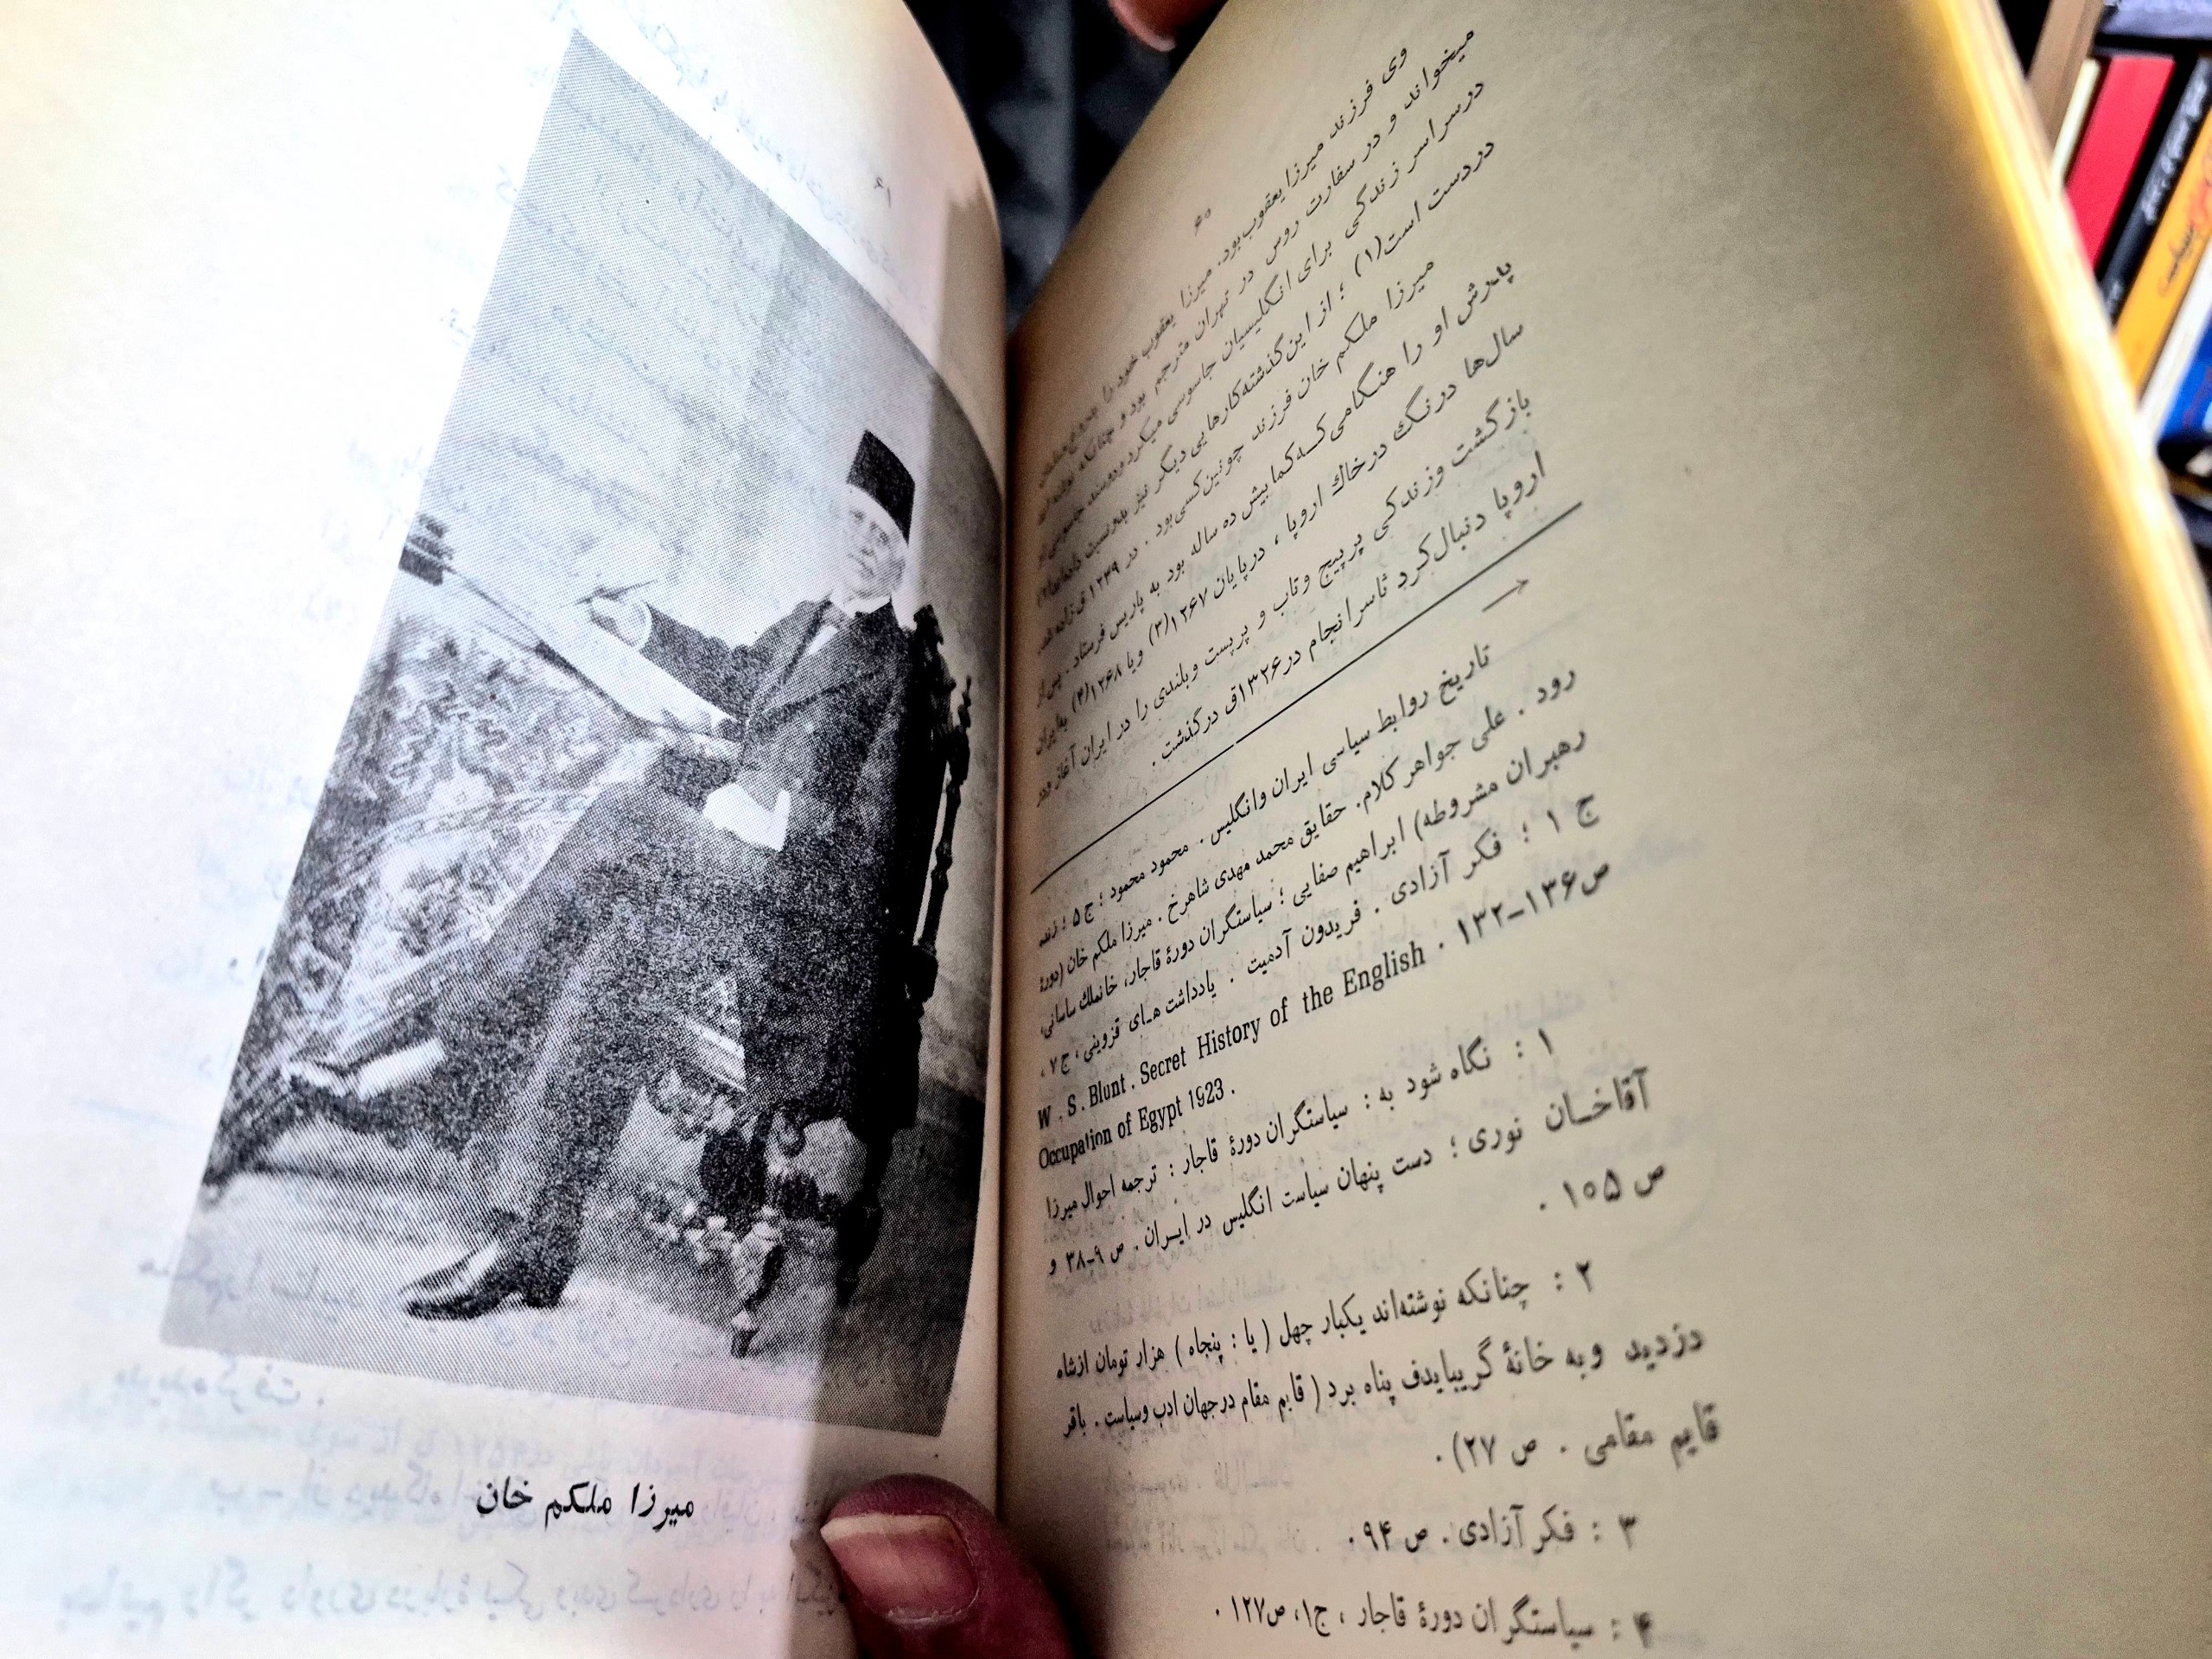 ۶۰
وی فرزند میرزا یعقوب بود. میرزا یعقوب خود را
میخواند و در سفارت روس در تهران مترجم بود و چنانکه نوشته‌اند
درسراسر زندگی برای انگلیسیان جاسوسی میکرد
دردست است(۱) ؛ از این گذشته کارهایی دیگر نیز بدو نسبت داده‌اند(۲)
میرزا ملکم خان فرزند چونین کسی بود . در ۱۲۴۹ ق زاده شد.
پدرش او را هنگامی کــه کمابیش ده ساله بود به پاریس فرستاد . پس از
سال‌ها درنگ درخاك اروپا ، درپایان ۱۲۶۷(۳) ویا ۱۲۶۸(۴) به ایران
بازگشت وزندگی پرپیچ وتاب و پرپست وبلندی را در ایران آغاز ودر
اروپا دنبال کرد تاسرانجام در۱۳۲۶ق درگذشت .
تاریخ روابط سیاسی ایران وانگلیس . محمود محمود ؛ ج ۵ ؛ زنده
رود . علی جواهر کلام. حقایق محمد مهدی شاهرخ . میرزا ملکم خان (دورهٔ
رهبران مشروطه) ابراهیم صفایی ؛ سیاستگران دورهٔ قاجار، خانملك ساسانی،
ج ۱ ؛ فکر آزادی . فریدون آدمیت . یادداشت هــای قزوینی ، ج ۷ ،
ص۱۳۶–۱۳۲ .
W . S . Blunt . Secret History of the English
Occupation of Egypt 1923 .
۱ : نگاه شود به : سیاستگران دورهٔ قاجار : ترجمه احوال میرزا
آقاخــان نوری ؛ دست پنهان سیاست انگلیس در ایــران . ص ۹–۳۸ و
ص ۱۰۵ .
۲ : چنانکه نوشته‌اند یکبار چهل ( یا : پنجاه ) هزار تومان ازشاه
دزدید وبه خانهٔ گریبایدف پناه برد ( قایم مقام درجهان ادب وسیاست . باقر
قایم مقامی . ص ۲۷).
۳ : فکر آزادی . ص ۹۴ .
۴ : سیاستگران دورهٔ قاجار ، ج۱، ص۱۲۷ .
۶۱
میرزا ملکم خان